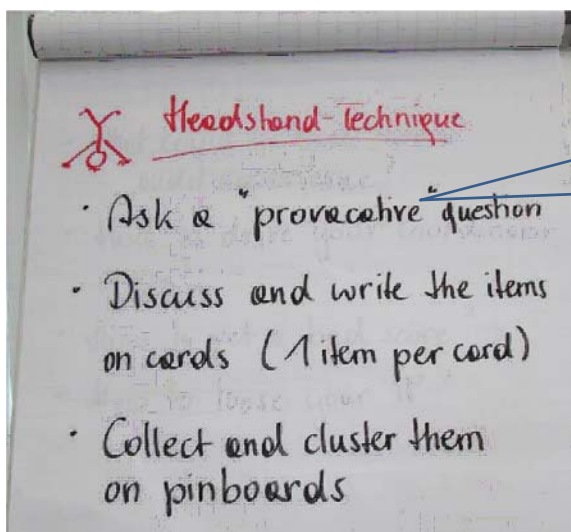 Headstand-Technique
· Ask a "provocative" question
· Discuss and write the items
on cards (1 item per card)
· Collect and cluster them
on pinboards